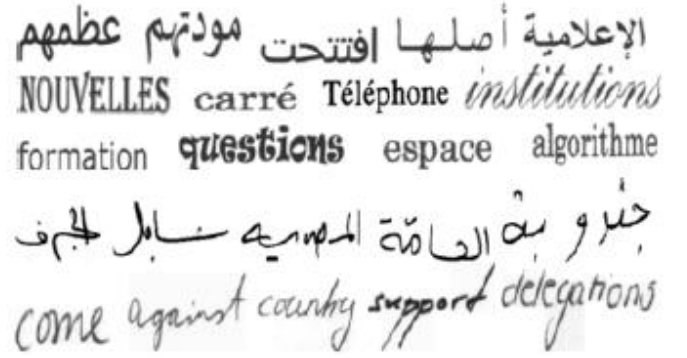 الإعلامية أصلها افتتحت مودتهم عظمهم
NOUVELLES carré Téléphone institutions
formation questions espace algorithme
العامة المصريه
come against country support delegations